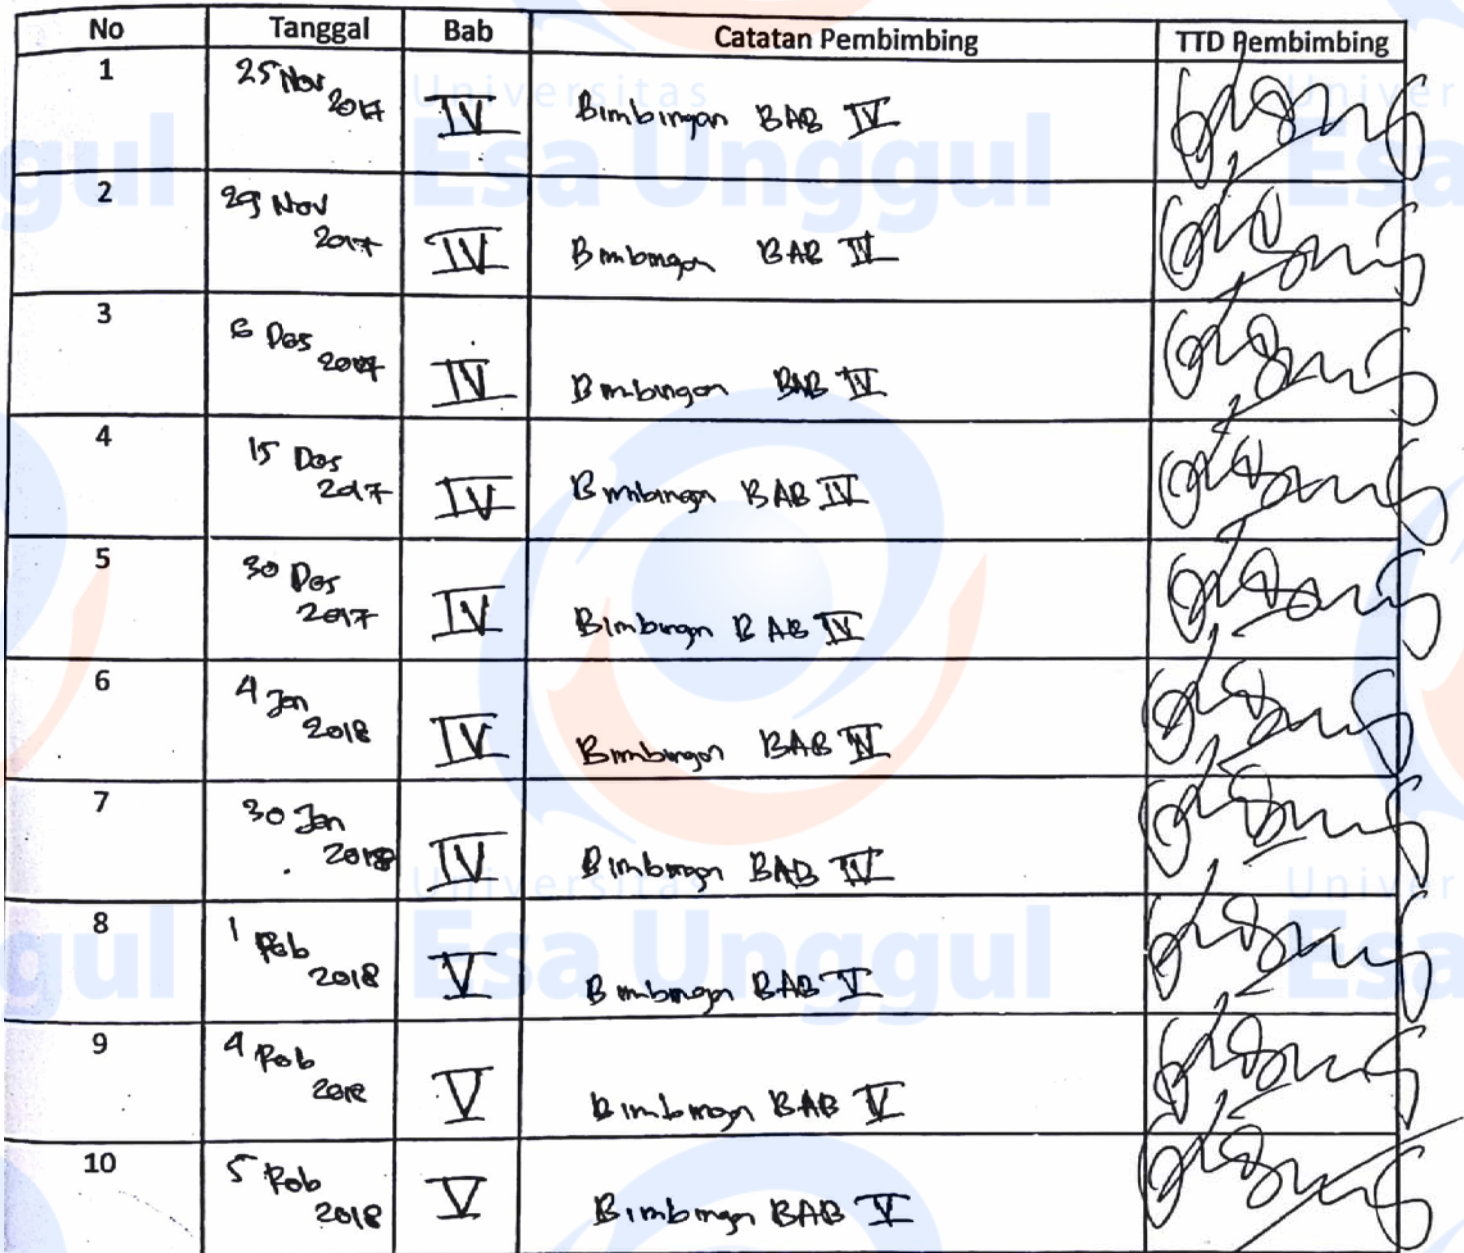 No Tanggal Bab Catatan Pembimbing TTD Pembimbing
1 25 Nov 2017 IV Bimbingan BAB IV
2 29 Nov 2017 IV Bimbingan BAB IV
3 6 Des 2017 IV Bimbingan BAB IV
4 15 Des 2017 IV Bimbingan BAB IV
5 30 Des 2017 IV Bimbingan BAB IV
6 4 Jan 2018 IV Bimbingan BAB IV
7 30 Jan 2018 IV Bimbingan BAB IV
8 1 Feb 2018 V Bimbingan BAB V
9 4 Feb 2018 V Bimbingan BAB V
10 5 Feb 2018 V Bimbingan BAB V
Universitas
Esa Unggul
Universitas
Esa Unggul